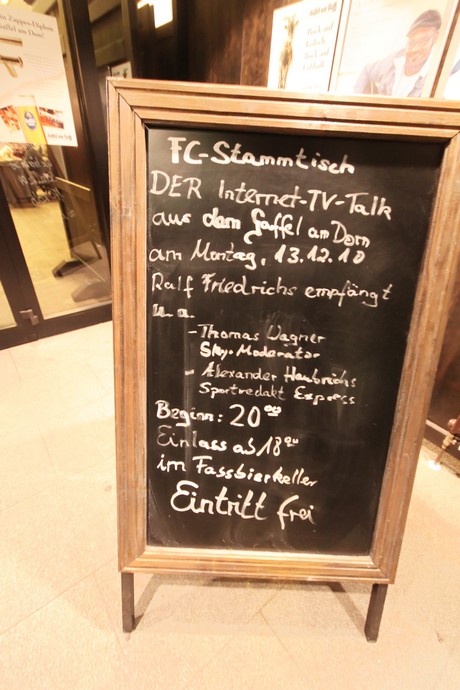 FC-Stammtisch
DER Internet-TV-Talk
aus dem Gaffel am Dom
am Montag, 13.12.10
Ralf Friedrichs empfängt
u.a.
- Thomas Wagner
Sky-Moderator
- Alexander Haubrichs
Sportredakt Express
Beginn: 20 00
Einlass ab 18 00
im Fassbierkeller
Eintritt frei